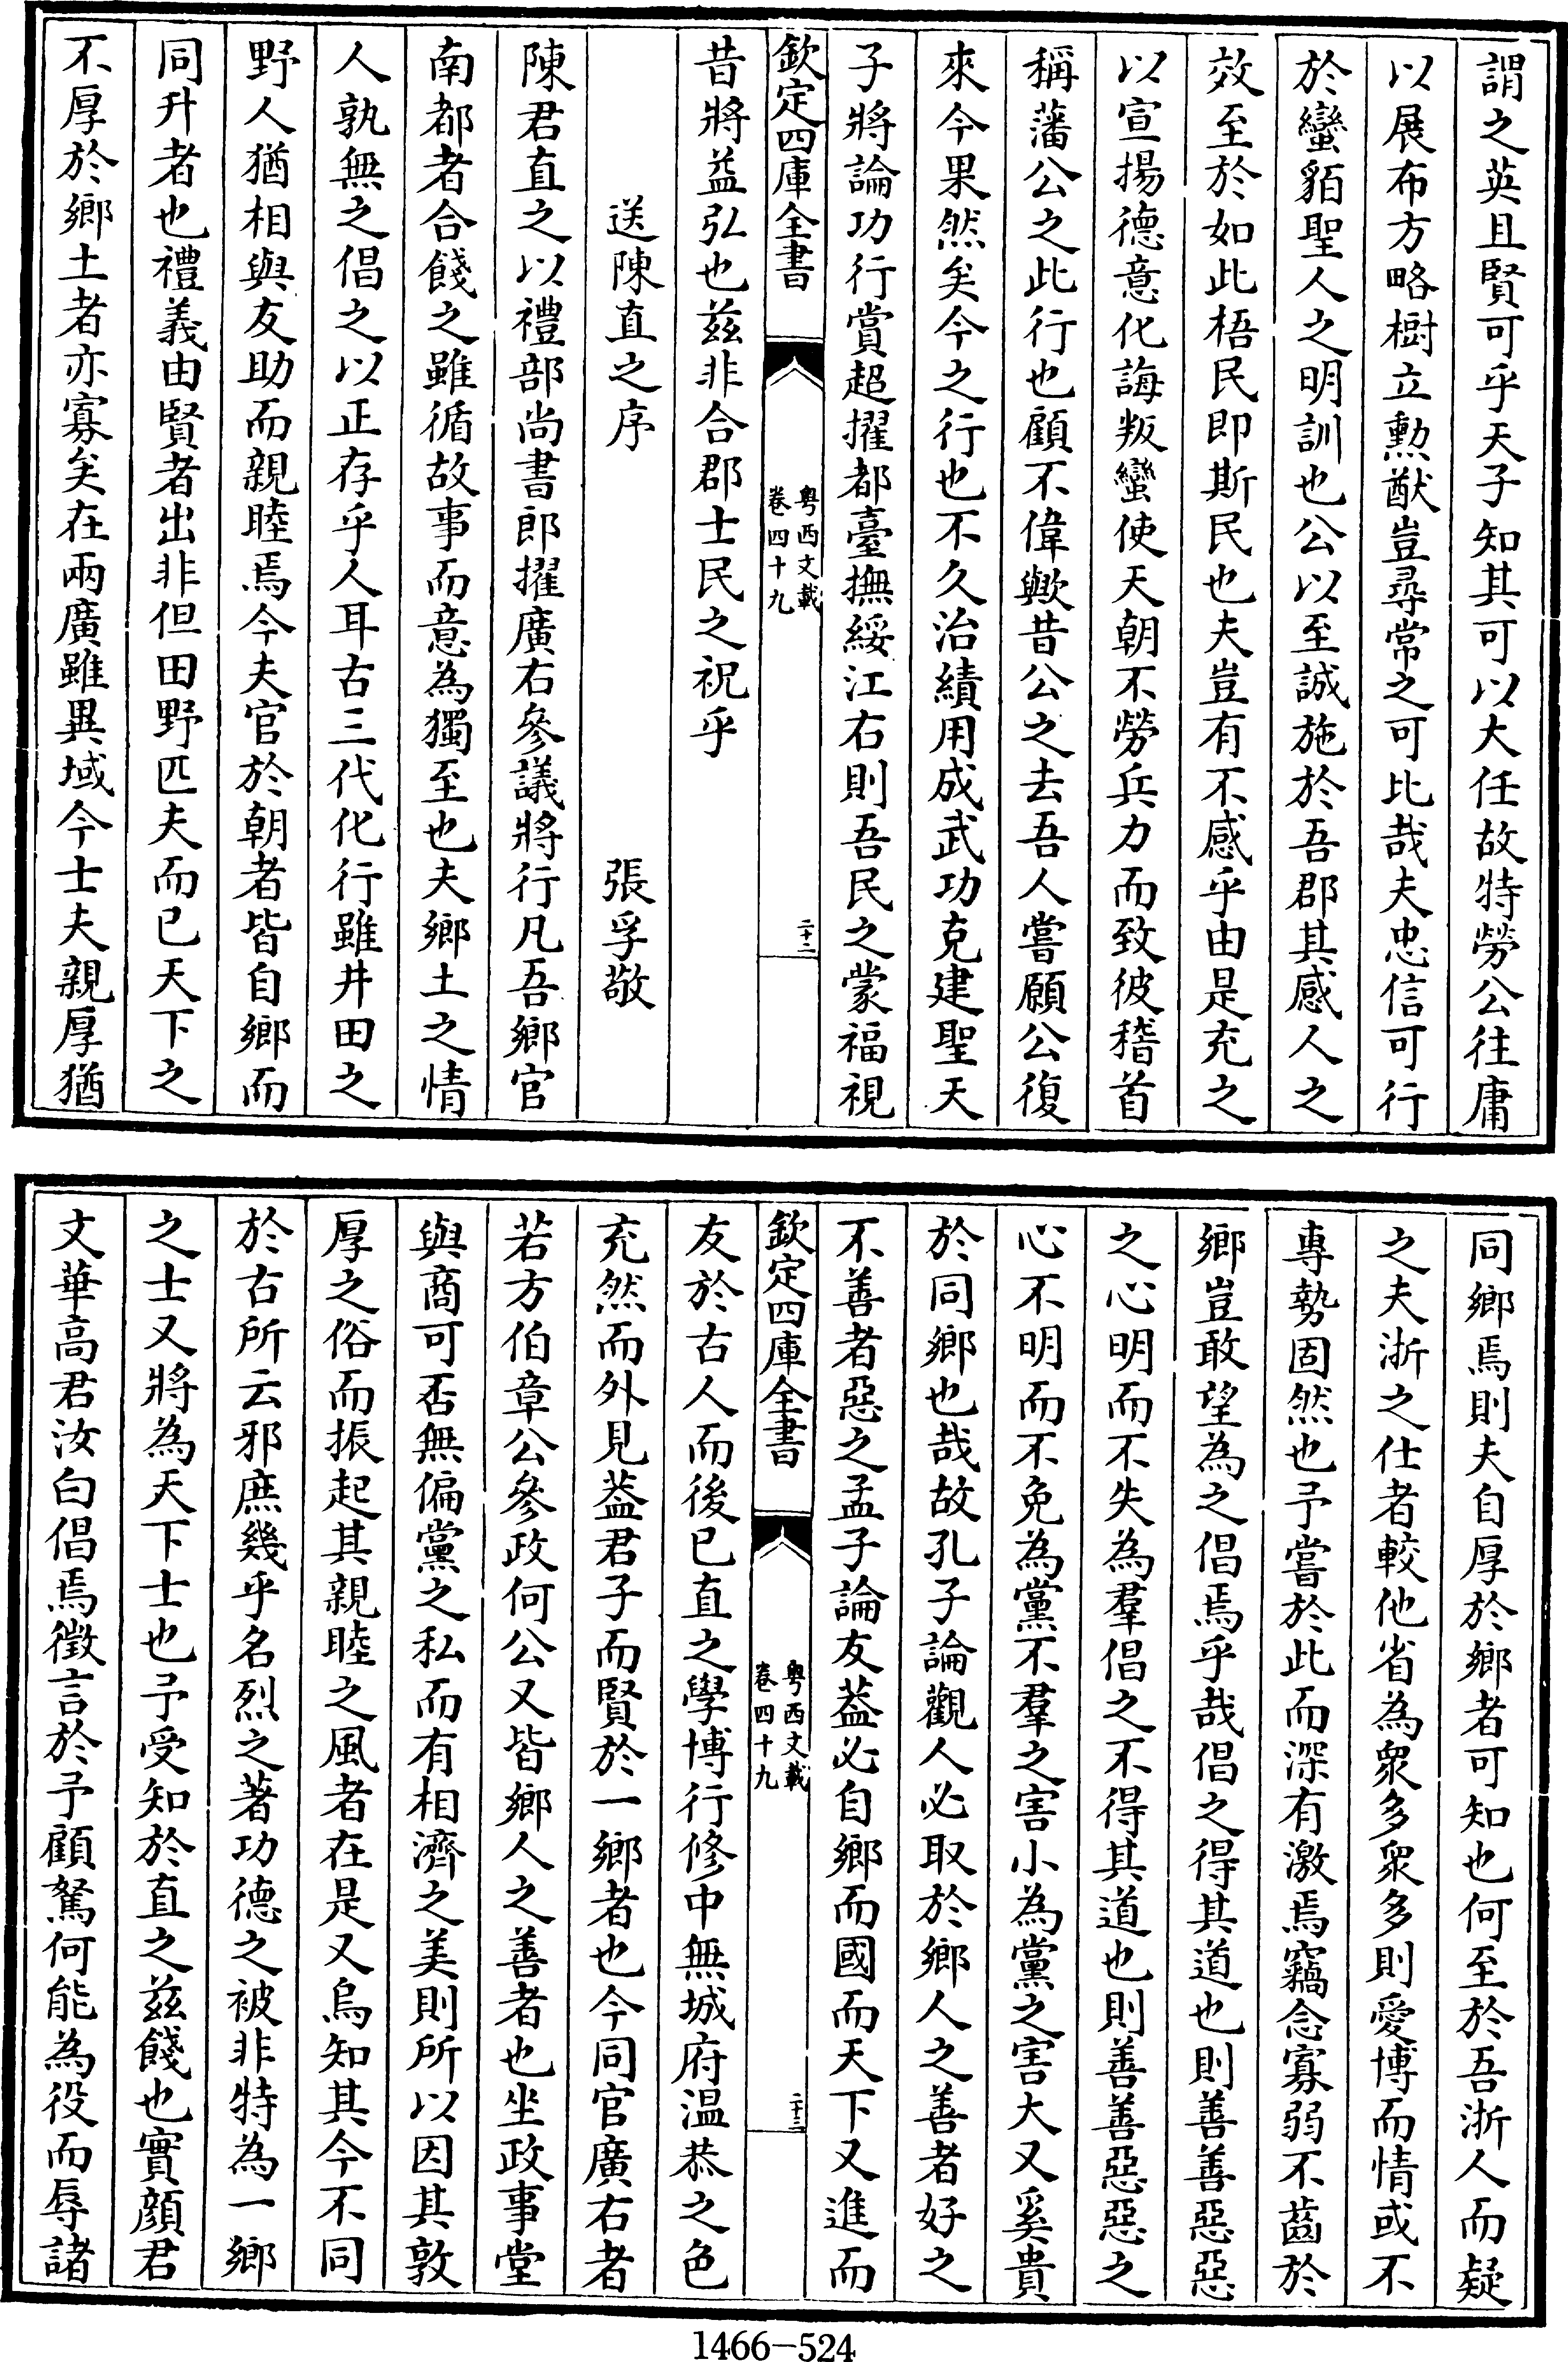 謂之英且賢可乎天子知其可以大任故特勞公往庸
以展布方略樹立勲猷豈尋常之可比哉夫忠信可行
於蠻貊聖人之明訓也公以至誠施於吾郡其感人之
效至於如此梧民即斯民也夫豈有不感乎由是充之
以宣揚德意化誨叛蠻使天朝不勞兵力而致彼稽首
稱藩公之此行也顧不偉歟昔公之去吾人嘗願公復
來今果然矣今之行也不久治績用成武功克建聖天
子將論功行賞超擢都臺撫綏江右則吾民之蒙福視
欽定四庫全書
粤西文載
卷四十九
二十二
昔將益弘也茲非合郡士民之祝乎
送陳直之序
張孚敬
陳君直之以禮部尚書郎擢廣右參議將行凡吾鄉官
南都者合餞之雖循故事而意為獨至也夫鄉土之情
人孰無之倡之以正存乎人耳古三代化行雖井田之
野人猶相與友助而親睦焉今夫官於朝者皆自鄉而
同升者也禮義由賢者出非但田野匹夫而已天下之
不厚於鄉土者亦寡矣在兩廣雖異域今士夫親厚猶
同鄉焉則夫自厚於鄉者可知也何至於吾浙人而疑
之夫浙之仕者較他省為衆多衆多則愛博而情或不
專勢固然也予嘗於此而深有激焉竊念寡弱不齒於
鄉豈敢望為之倡焉乎哉倡之得其道也則善善惡惡
之心明而不失為羣倡之不得其道也則善善惡惡之
心不明而不免為黨不羣之害小為黨之害大又奚貴
於同鄉也哉故孔子論觀人必取於鄉人之善者好之
不善者惡之孟子論友葢必自鄉而國而天下又進而
欽定四庫全書
粤西文載
卷四十九
二十三
友於古人而後已直之學博行修中無城府溫恭之色
充然而外見葢君子而賢於一鄉者也今同官廣右者
若方伯章公參政何公又皆鄉人之善者也坐政事堂
與商可否無偏黨之私而有相濟之美則所以因其敦
厚之俗而振起其親睦之風者在是又烏知其今不同
於古所云邪庶幾乎名烈之著功德之被非特為一鄉
之士又將為天下士也予受知於直之茲餞也實顏君
文華高君汝白倡焉徵言於予顧駑何能為役而辱諸
1466-524